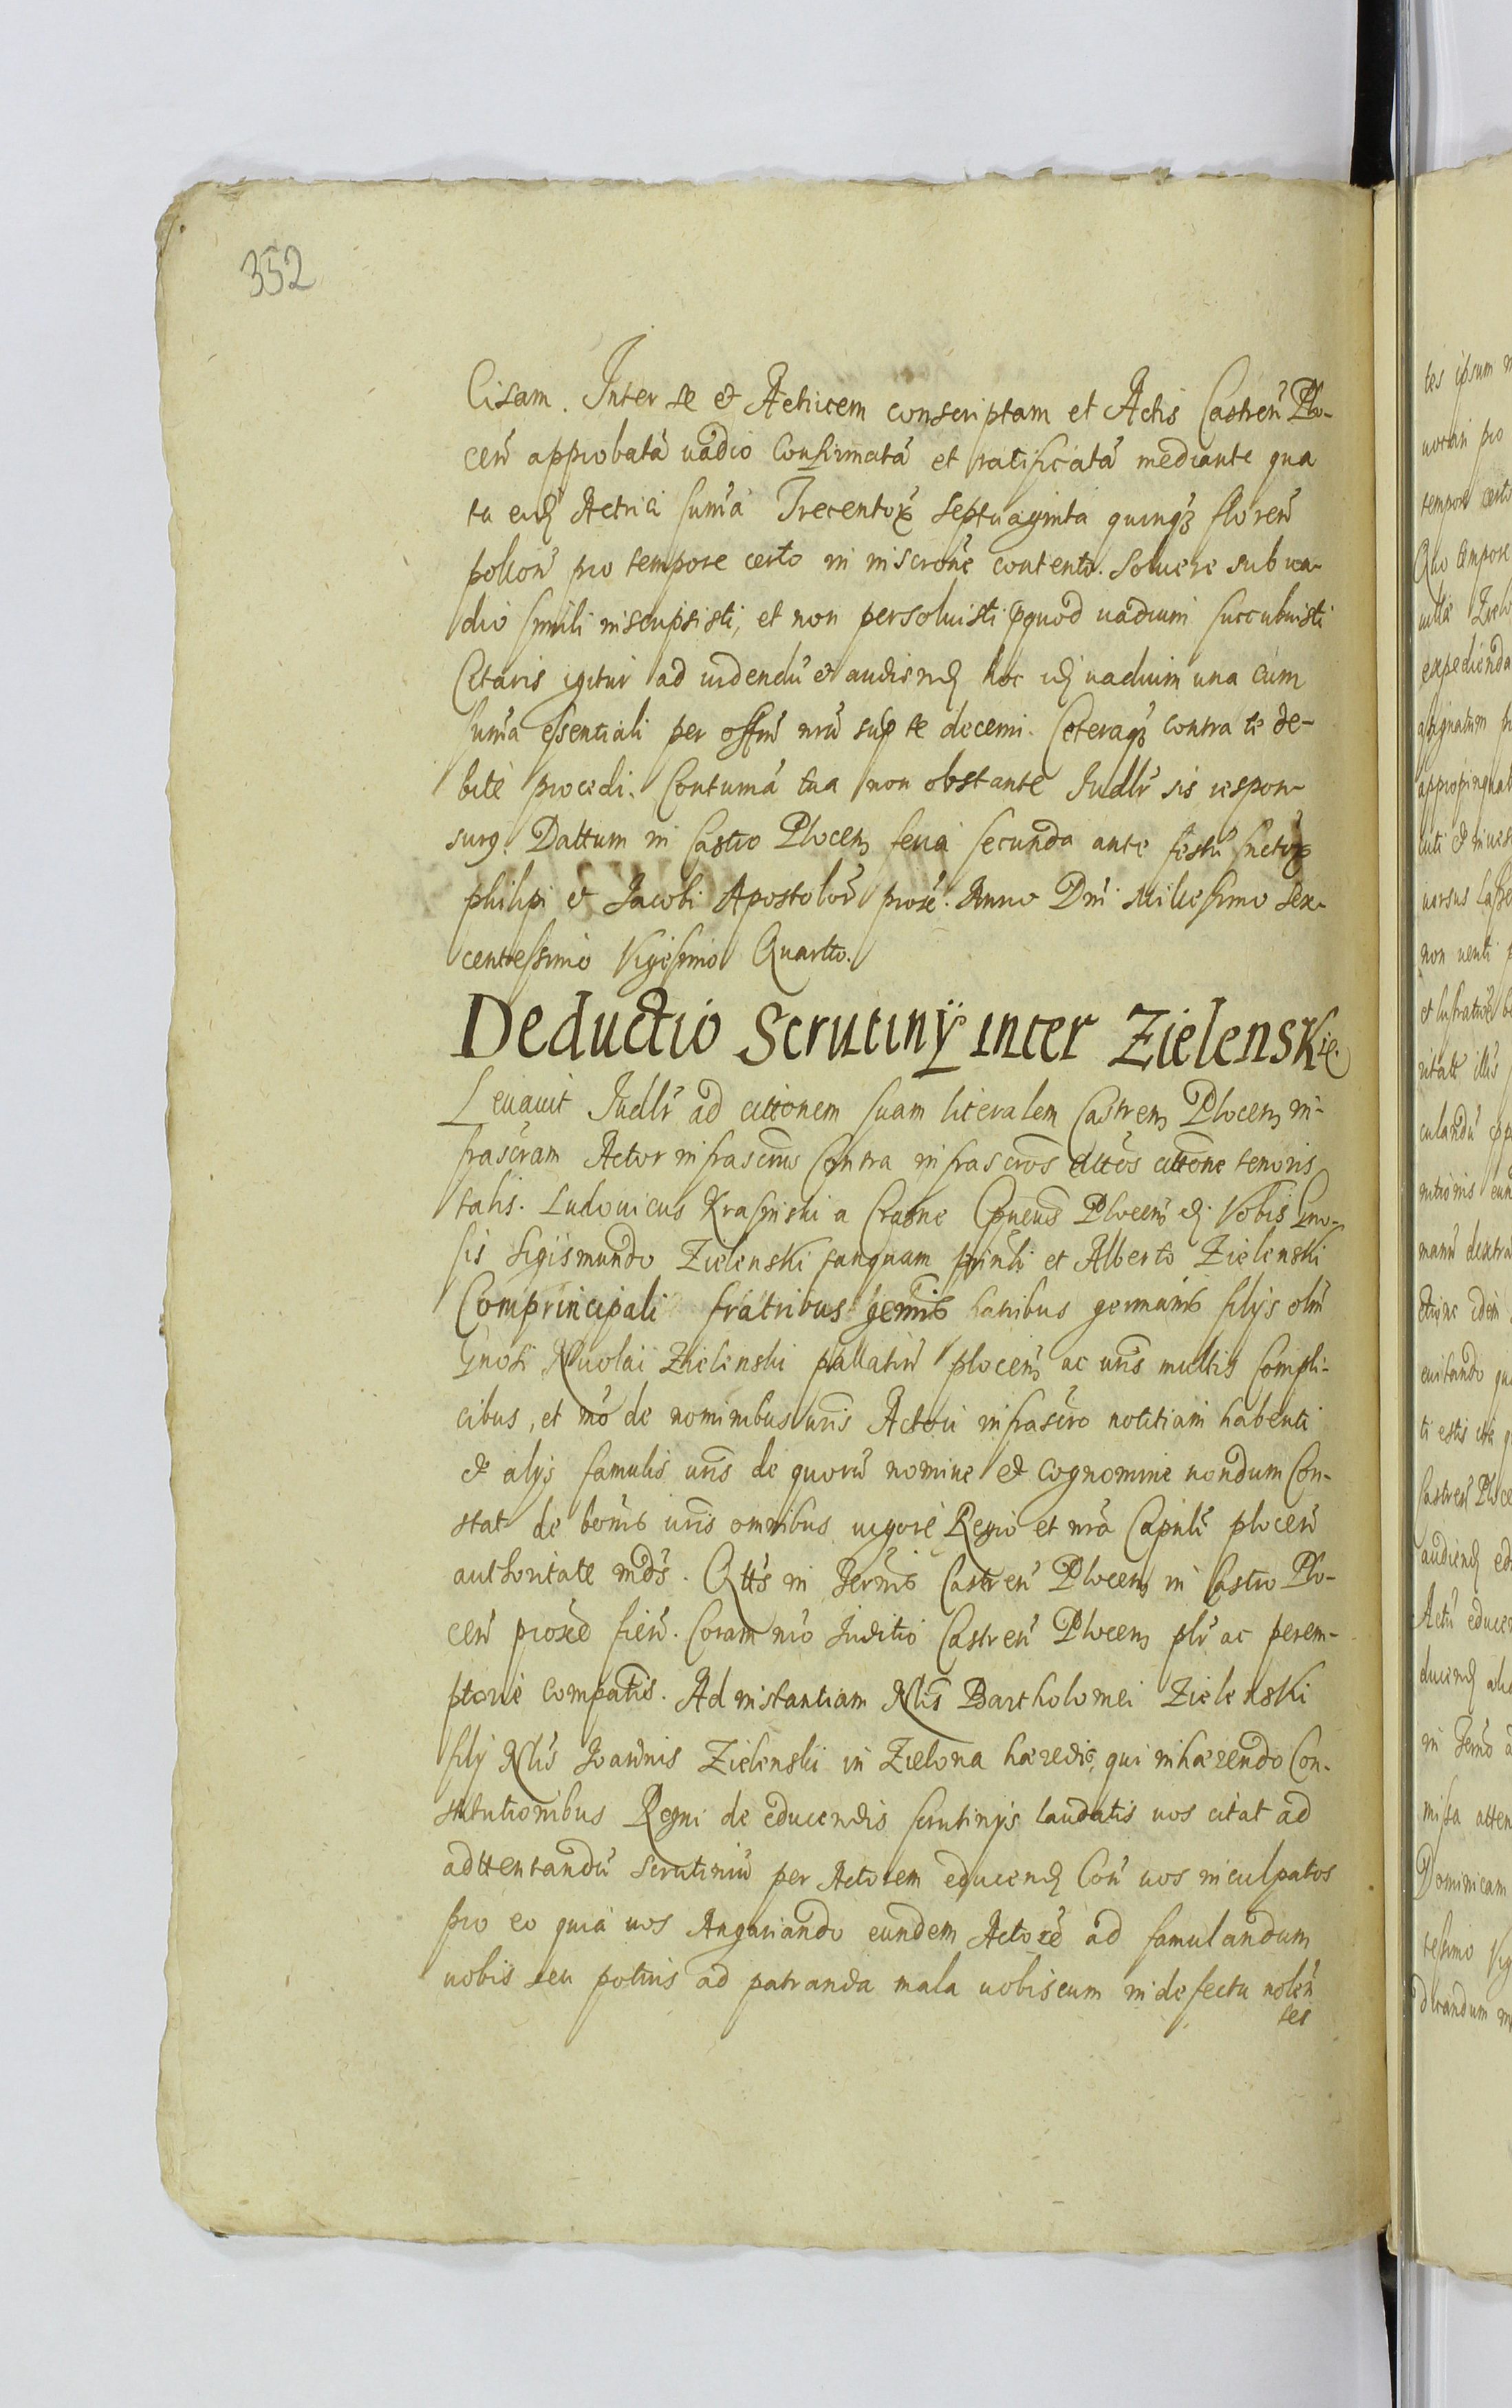 352
Cisam. Inter te et Actricem conscriptam et Actis Castreñ Plo-
ceñ approbatã uadio Confirmatã et ratificatã mediante qua
tu eidẽ Actrici sum̃a Trecentorꝝ septuaginta quinqꝫ floreñ
polloñ pro tempore certo in inscr̃one contento. Soluere sub ua-
dio simili inscripsisti, et non persoluisti ꝑquod uadium succubuisti
Citaris igitur ad uidendũ et audiendẽ hoc idẽ uadium una cum
sum̃a essentiali per offm̃ nrũ sup te decerni. Ceteraqꝫ contra te de-
bite procedi. Contumã tua non obstante Iudlr̃ sis respon-
surꝰ. Dattum in Castro Plocenꝭ feria secunda ante festũ sactorꝝ
philipi et Jacobi Apostolorũ proxe. Anno Dni Millessimo sex-
centessimo Vigesimo Quarto.
Deductio Scrutinÿ inter Zielenskie.
Leuauit Iudlr̃ ad cittonem suam literalem Castrenꝭ Plocenꝭ in-
frascr̃am Actor infrascrũs Contra infrascr̃os citt̃os cittone tenoris
talis. Ludouicus Krasinski a Crasne Cpneus Plocenꝭ etc. Vobis Gno-
sis Sigismundo Zielenski tanquam prin̄li et Alberto Zielenski
Comprincipali fratribus germis fratribus germanis filÿs olm̃
Gnosi Nicolai Zielenski pallatiñ plocenꝭ ac uris multis Compli-
cibus, et mõ de nominibus uris Actori infrascr̃o notitiam habenti
et alÿs famulis uris de quorũ nomine et cognomine nondum Con-
stat de bonis uris omnibus uigore Regio et nrã Capnlĩ ploceñ
authoritate mds̃. Qtt̃s in Termis Castreñ Plocenꝭ in Castro Plo-
ceñ proxe fieñ. Coram nrõ Iuditio Castreñ Plocenꝭ plr̃ ac perem-
ptorie compatis. Ad instantiam Nlis Bartholomei Zielenski
filÿ Nlis Joannis Zielenski in Zielona hæredis, qui inhærendo Con-
stitutionibus Regni de educendis scrutinÿs laudatis uos citat ad
adttentandũ scrutiniũ per Actorem educendẽ Coñ uos inculpatos
pro eo quia uos Angariando eundem Actorẽ ad famulandum
uobis seu potius ad patranda mala uobiscum in defectu noleñ
tes
tes ipsum
pro
tempore certo
Quo tempore
expedienda
non uenti
Castreñ Ploce
Dominicam